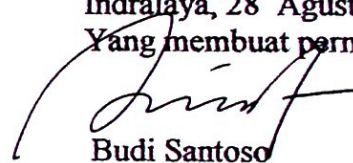 Indralaya, 28 Agust
Yang membuat pern
Budi Santoso